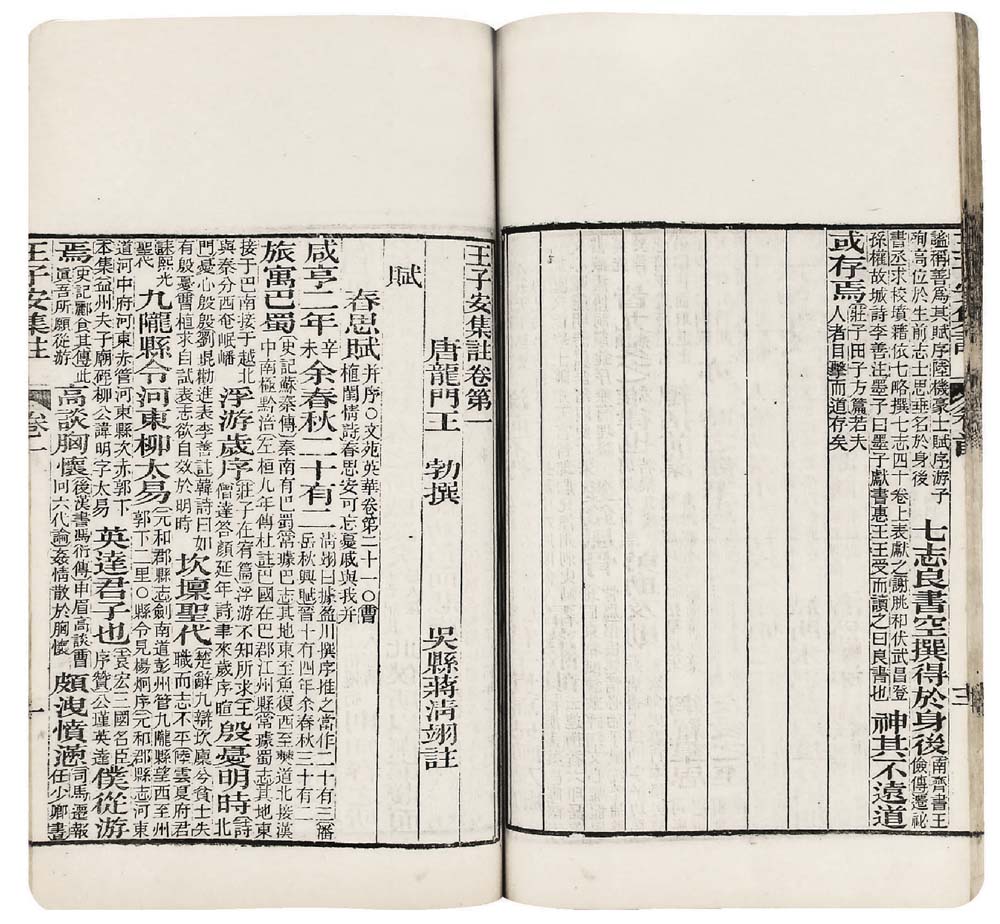 王子安集註 卷首
謚稱善為其賦序陸機豪士賦序游子
殉高位於生前志士思垂名於身後
七志良書空撰得於身後
南齊書王
儉傳遷祕
書丞求校墳籍依七略撰七志四十卷上表獻之謝朓和伏武昌登
孫權故城詩李善注墨子曰墨子獻書惠王王受而讀之曰良書也
神其不遠道
或存焉
莊子田子方篇若夫
人者目擊而道存矣
王子安集註卷第一
唐龍門王 勃撰 吳縣蔣清翊註
賦
春思賦
并序○文苑英華卷第二十一○曹
植閨情詩春思安可忘憂戚與我并
咸亨二年
辛
未
余春秋二十有二
清翊曰據盈川撰序推之當作二十有三潘
岳秋興賦晉十有四年余春秋三十有二
旅寓巴蜀
史記蘇秦傳秦南有巴蜀常璩巴志其地東至魚復西至僰道北接漢
中南極黔涪左桓九年傳杜註巴國在巴郡江州縣常璩蜀志其地東
接于巴南接于越北
與秦分西奄岷嶓
浮游歲序
莊子在宥篇浮游不知所求王
僧達答顏延年詩聿來歲序暄
殷憂明時
詩
北
門憂心殷殷劉琨勸進表李善註韓詩曰如
有殷憂曹植求自試表志欲自效於明時
坎壈聖代
楚辭九辯坎廩兮貧士失
職而志不平陸雲夏府君
誄熙光
聖代
九隴縣令河東柳太易
元和郡縣志劍南道彭州管九隴縣望西至州
郭下二里○縣令見楊炯序元和郡縣志河東
道河中府河東赤管河東縣次赤郭下
本集益州夫子廟碑柳公諱明字太易
英達君子也
袁宏三國名臣
序贊公瑾英達
僕從游
焉
史記酈食其傳此
眞吾所願從游
高談胸懷
後漢書馮衍傳申眉高談曹
冏六代論姦情散於胸懷
頗洩憤懣
司馬遷報
任少卿書
王子安集註 卷一 一